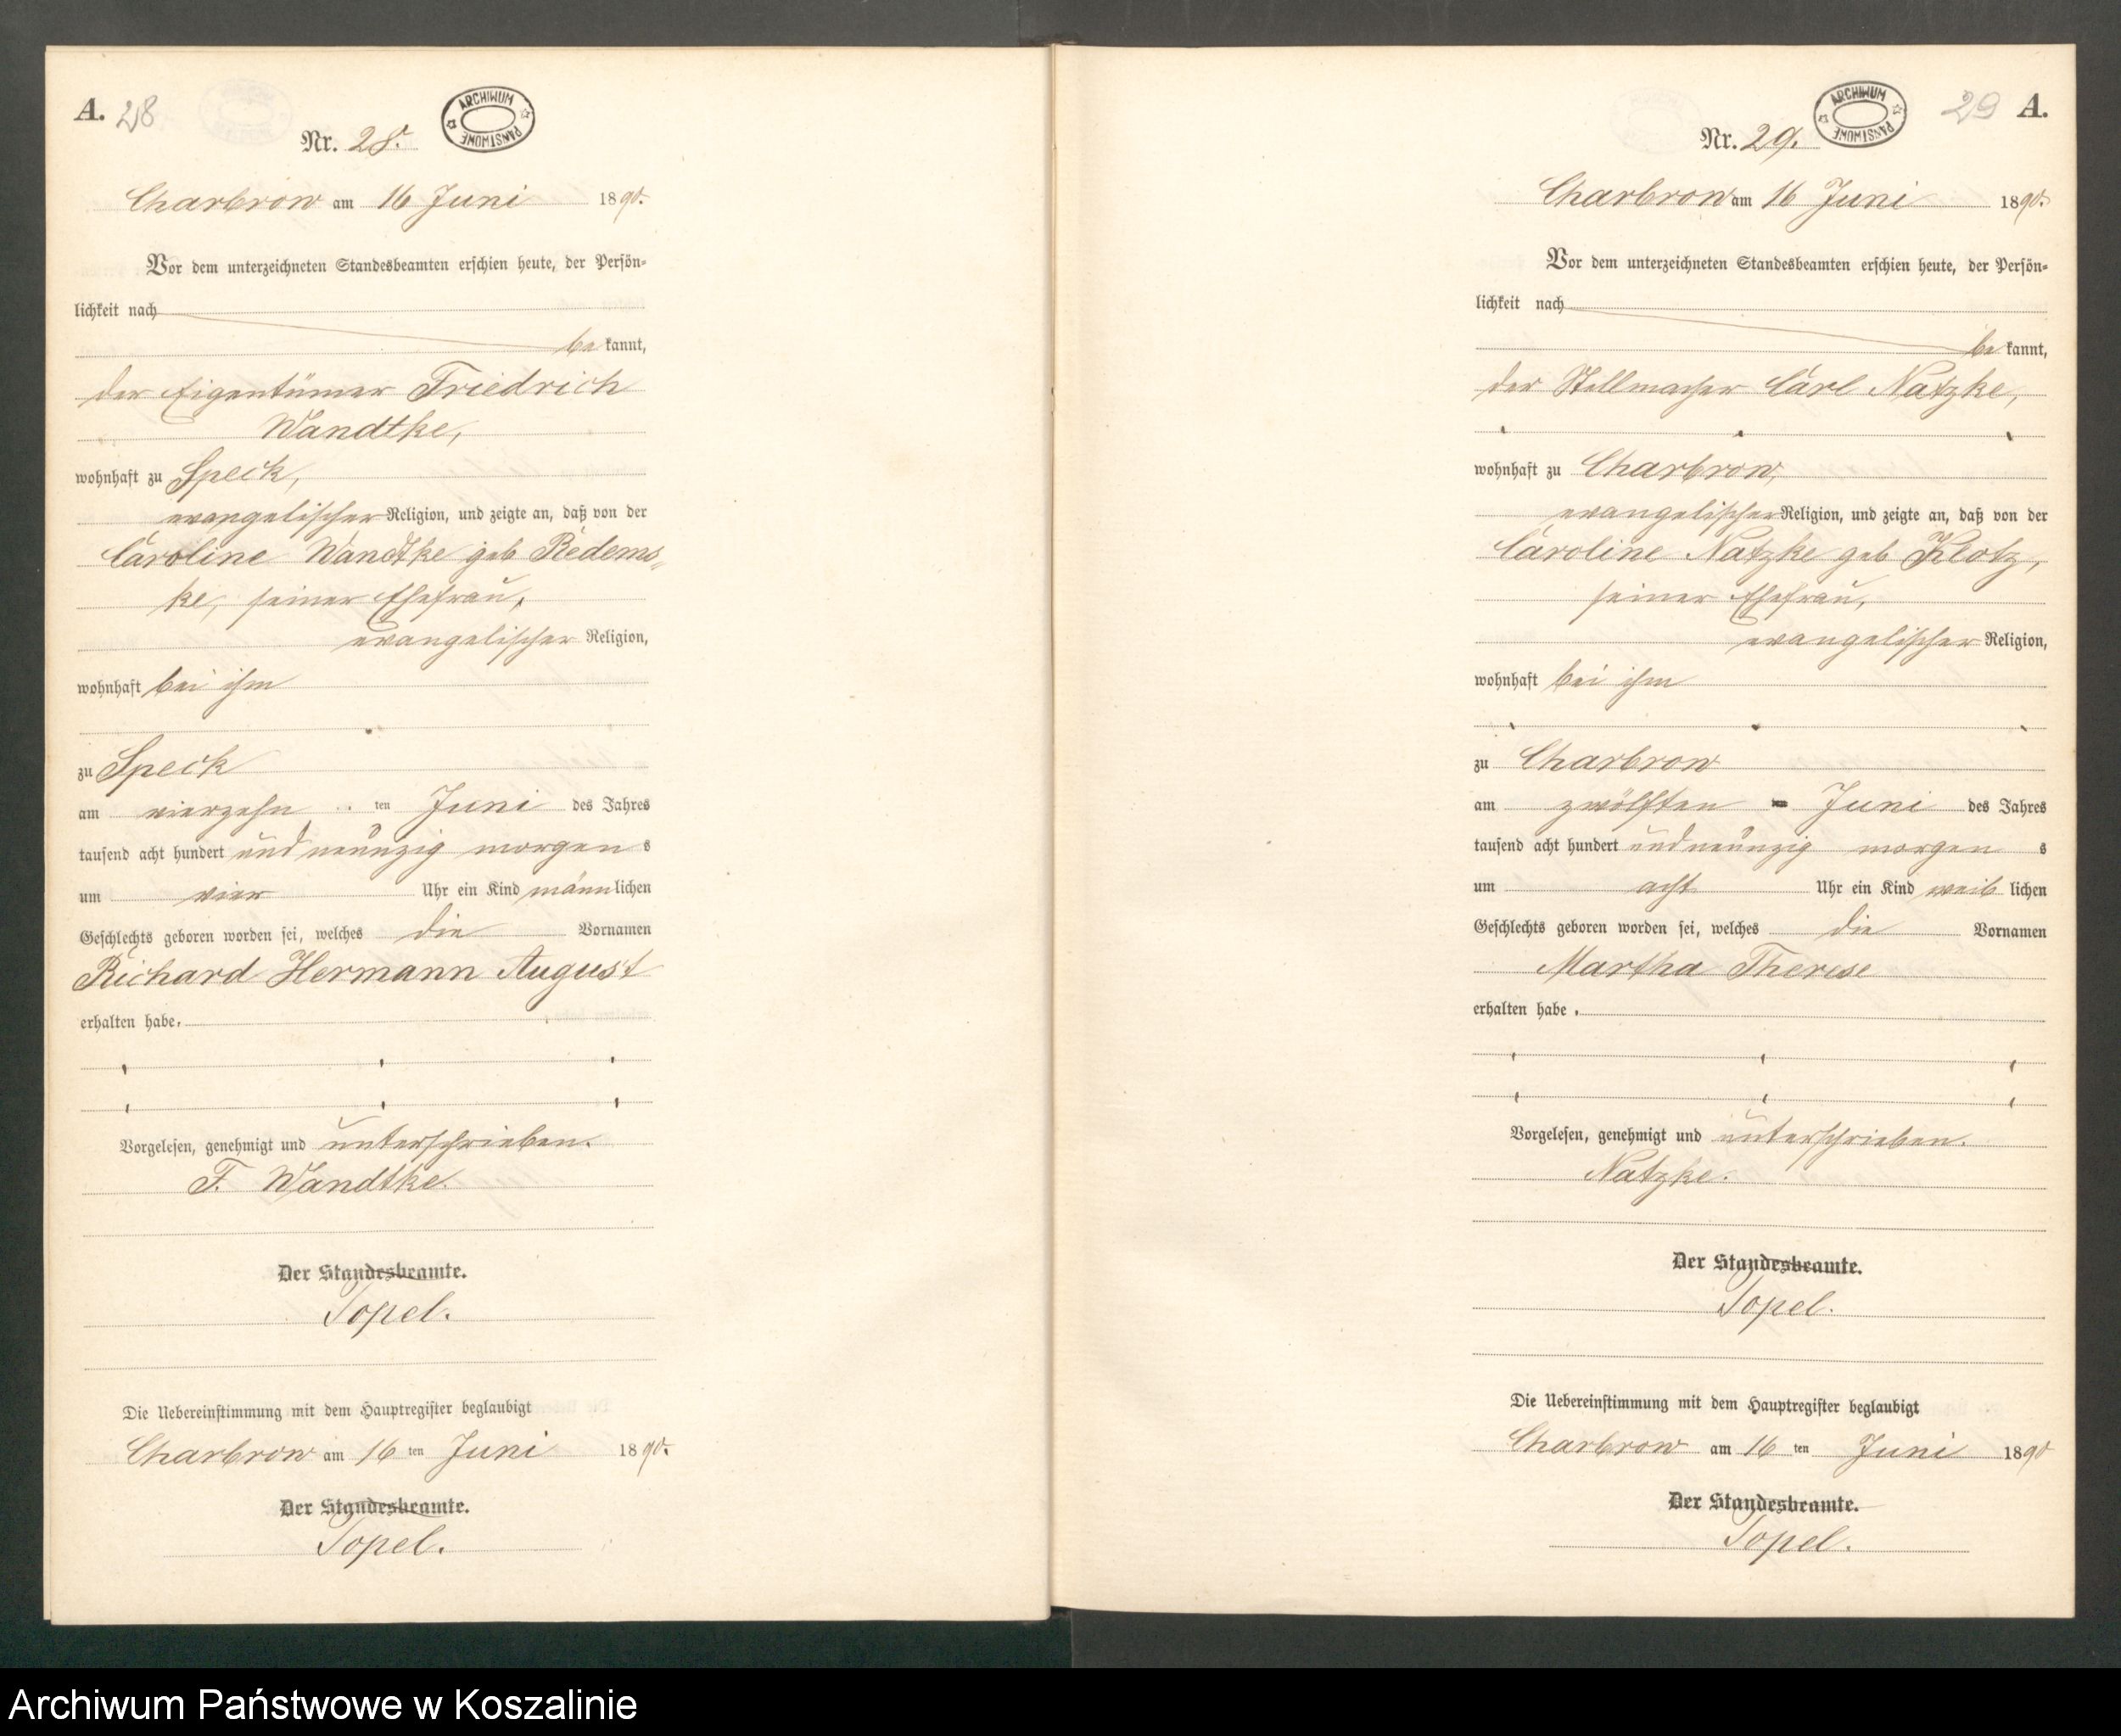 A. 28
ARCHIWUM PAŃSTWOWE
Nr. 28.
Charbrow am 16 Juni 1890.
Vor dem unterzeichneten Standesbeamten erschien heute, der Persön-
lichkeit nach
bekannt,
der Eigentümer Friedrich
Wandtke,
wohnhaft zu Speck,
evangelischer Religion, und zeigte an, daß von der
Caroline Wandtke geb Redems-
ke, seiner Ehefrau,
evangelischer Religion,
wohnhaft bei ihm
zu Speck
am vierzehn ten Juni des Jahres
tausend acht hundert und neunzig morgens
um vier Uhr ein Kind männlichen
Geschlechts geboren worden sei, welches die Vornamen
Richard Hermann August
erhalten habe.
Vorgelesen, genehmigt und unterschrieben.
F. Wandtke.
Der Standesbeamte.
Topel.
Die Uebereinstimmung mit dem Hauptregister beglaubigt
Charbrow am 16 ten Juni 1890.
Der Standesbeamte.
Topel.
29 A.
ARCHIWUM PAŃSTWOWE
Nr. 29.
Charbrow am 16 Juni 1890.
Vor dem unterzeichneten Standesbeamten erschien heute, der Persön-
lichkeit nach
bekannt,
der Stellmacher Carl Natzke,
wohnhaft zu Charbrow,
evangelischer Religion, und zeigte an, daß von der
Caroline Natzke geb Klotz,
seiner Ehefrau,
evangelischer Religion,
wohnhaft bei ihm
zu Charbrow
am zwölften Juni des Jahres
tausend acht hundert und neunzig morgens
um acht Uhr ein Kind weiblichen
Geschlechts geboren worden sei, welches die Vornamen
Martha Therese
erhalten habe.
Vorgelesen, genehmigt und unterschrieben.
Natzke.
Der Standesbeamte.
Topel.
Die Uebereinstimmung mit dem Hauptregister beglaubigt
Charbrow am 16 ten Juni 1890
Der Standesbeamte.
Topel.
Archiwum Państwowe w Koszalinie